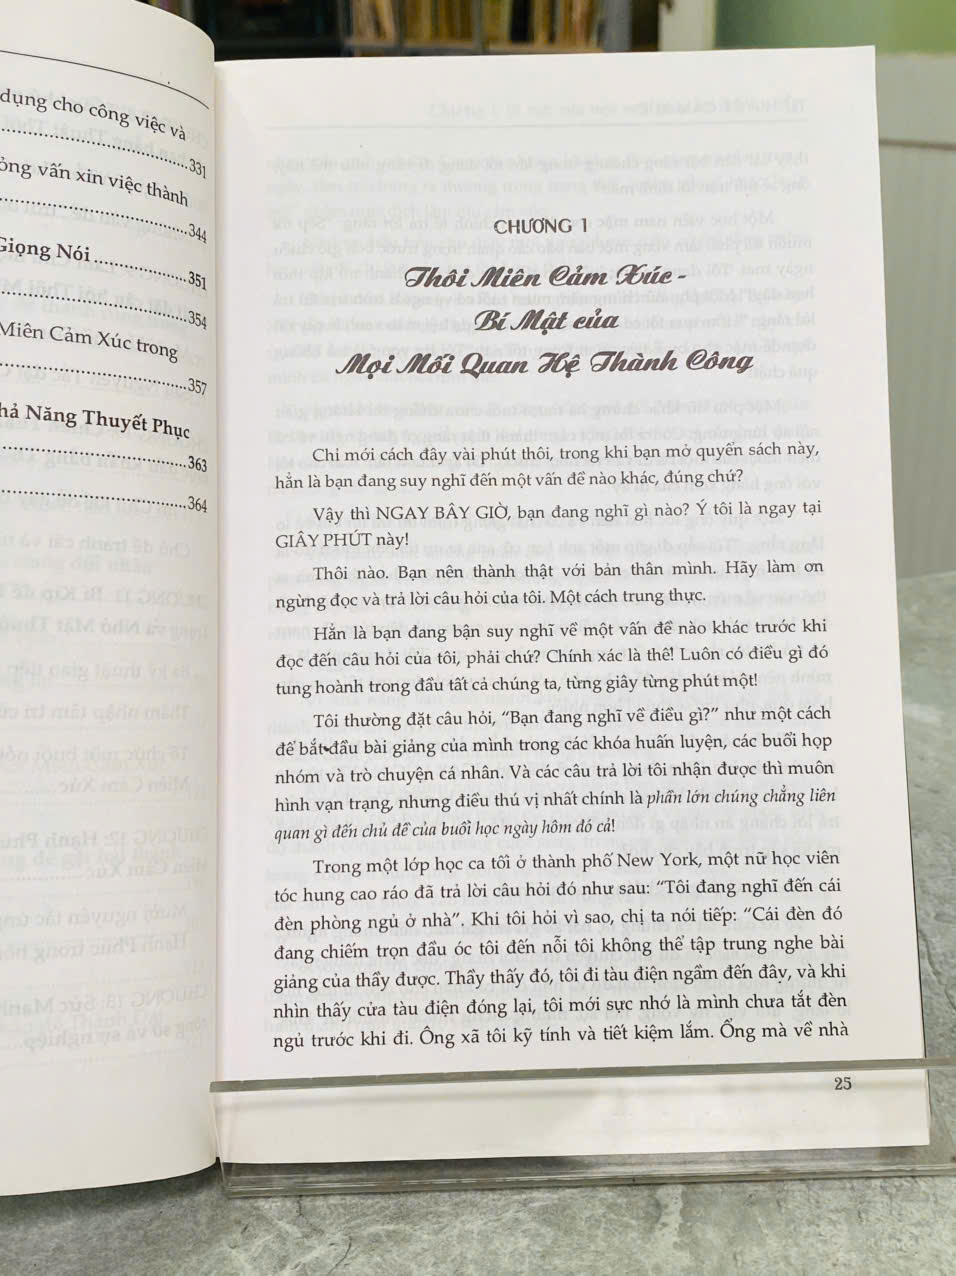 dụng cho công việc và
331
ỏng vấn xin việc thành
344
Giọng Nói 351
354
Miên Cảm Xúc trong
357
hả Năng Thuyết Phục
363
364
CHƯƠNG 1
Thôi Miên Cảm Xúc -
Bí Mật của
Mọi Mối Quan Hệ Thành Công
Chỉ mới cách đây vài phút thôi, trong khi bạn mở quyển sách này,
hẳn là bạn đang suy nghĩ đến một vấn đề nào khác, đúng chứ?
Vậy thì NGAY BÂY GIỜ, bạn đang nghĩ gì nào? Ý tôi là ngay tại
GIÂY PHÚT này!
Thôi nào. Bạn nên thành thật với bản thân mình. Hãy làm ơn
ngừng đọc và trả lời câu hỏi của tôi. Một cách trung thực.
Hẳn là bạn đang bận suy nghĩ về một vấn đề nào khác trước khi
đọc đến câu hỏi của tôi, phải chứ? Chính xác là thế! Luôn có điều gì đó
tung hoành trong đầu tất cả chúng ta, từng giây từng phút một!
Tôi thường đặt câu hỏi, “Bạn đang nghĩ về điều gì?” như một cách
để bắt đầu bài giảng của mình trong các khóa huấn luyện, các buổi họp
nhóm và trò chuyện cá nhân. Và các câu trả lời tôi nhận được thì muôn
hình vạn trạng, nhưng điều thú vị nhất chính là phần lớn chúng chẳng liên
quan gì đến chủ đề của buổi học ngày hôm đó cả!
Trong một lớp học ca tối ở thành phố New York, một nữ học viên
tóc hung cao ráo đã trả lời câu hỏi đó như sau: “Tôi đang nghĩ đến cái
đèn phòng ngủ ở nhà”. Khi tôi hỏi vì sao, chị ta nói tiếp: “Cái đèn đó
đang chiếm trọn đầu óc tôi đến nỗi tôi không thể tập trung nghe bài
giảng của thầy được. Thầy thấy đó, tôi đi tàu điện ngầm đến đây, và khi
nhìn thấy cửa tàu điện đóng lại, tôi mới sực nhớ là mình chưa tắt đèn
ngủ trước khi đi. Ông xã tôi kỹ tính và tiết kiệm lắm. Ổng mà về nhà
25